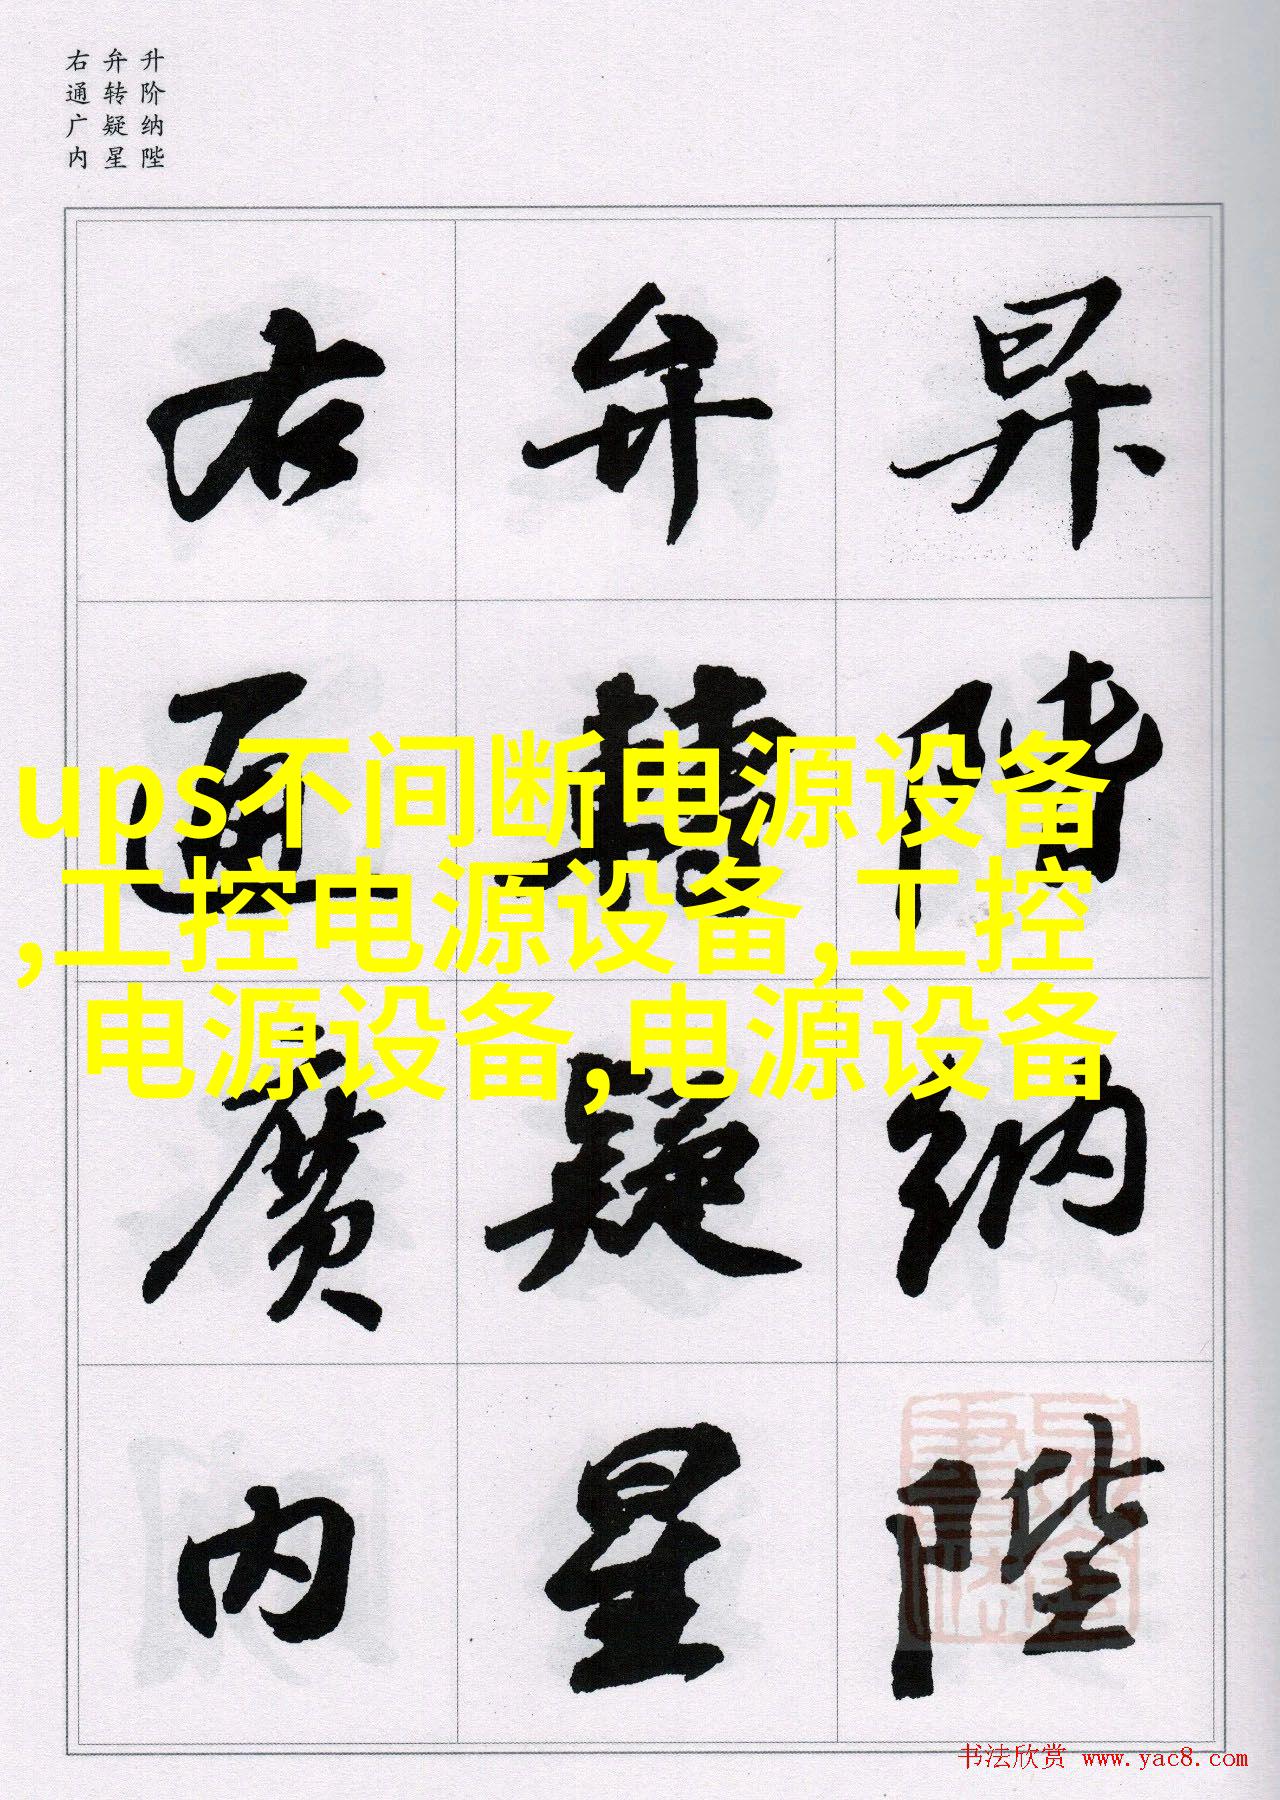 升阶纳陛
弁转疑星
右通广内
昇階納陛
弁轉疑星
右通廣内
ups不间断电源设备
,工控电源设备,工控
电源设备,电源设备
书法欣赏 www.yac8.com